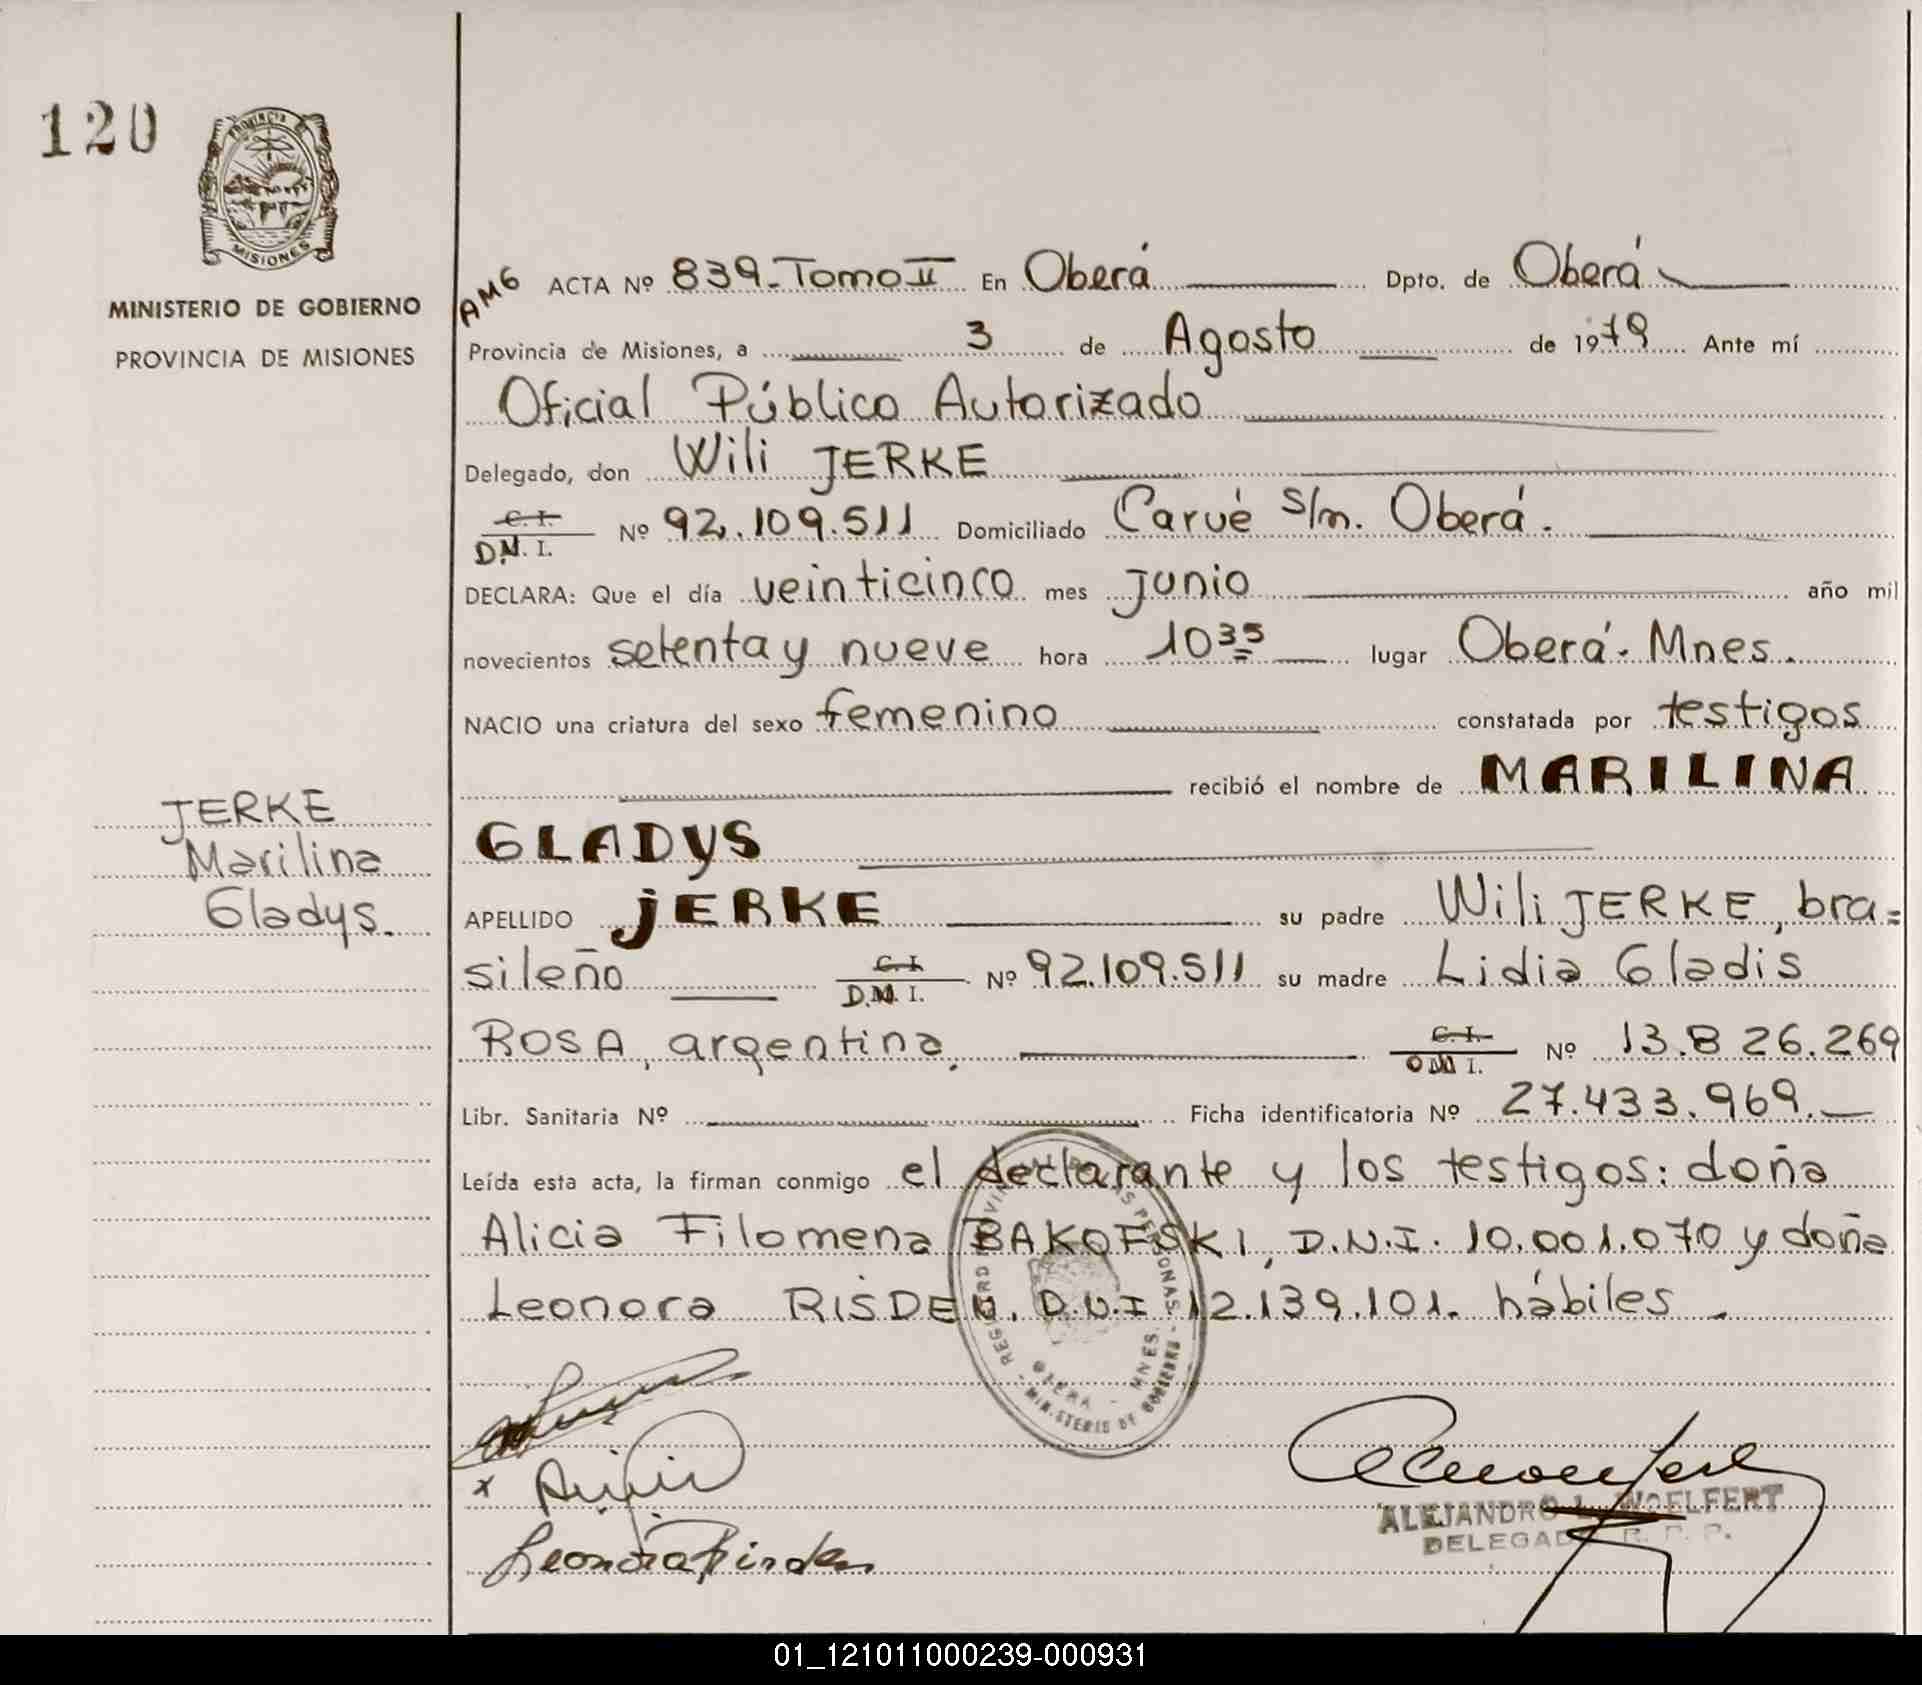 120
PROVINCIA DE
MISIONES
MINISTERIO DE GOBIERNO
PROVINCIA DE MISIONES
JERKE
Marilina
Gladys.
AMG ACTA Nº 839-Tomo II En Oberá Dpto. de Oberá
Provincia de Misiones, a 3 de Agosto de 1979 Ante mí
Oficial Público Autorizado
Delegado, don Wili JERKE
C.I. D.N.I. Nº 92.109.511 Domiciliado Carué s/m. Oberá.
DECLARA: Que el día veinticinco mes junio año mil
novecientos setenta y nueve hora 10 35 lugar Oberá. Mnes.
NACIO una criatura del sexo femenino constatada por testigos
recibió el nombre de MARILINA
GLADYS
APELLIDO JERKE su padre Wili JERKE, bra=
sileño C.I D.N.I. Nº 92.109.511 su madre Lidia Gladis
ROSA, argentina. C.I. DNI I. Nº 13.826.269
Libr. Sanitaria Nº Ficha identificatoria Nº 27.433.969.
Leída esta acta, la firman conmigo el declarante y los testigos: doña
Alicia Filomena BAKOFSKI, D.N.I. 10.001.070 y doña
Leonora RISDEN. D.N.I 12.139.101. hábiles.
REGISTRO PROVINCIAL DE LAS PERSONAS.
OBERA - MNES.
- MINISTERIO DE GOBIERNO -
x
Leonora Risden
ALEJANDRO L. WOELFERT
DELEGADO R. P. P.
01_121011000239-000931